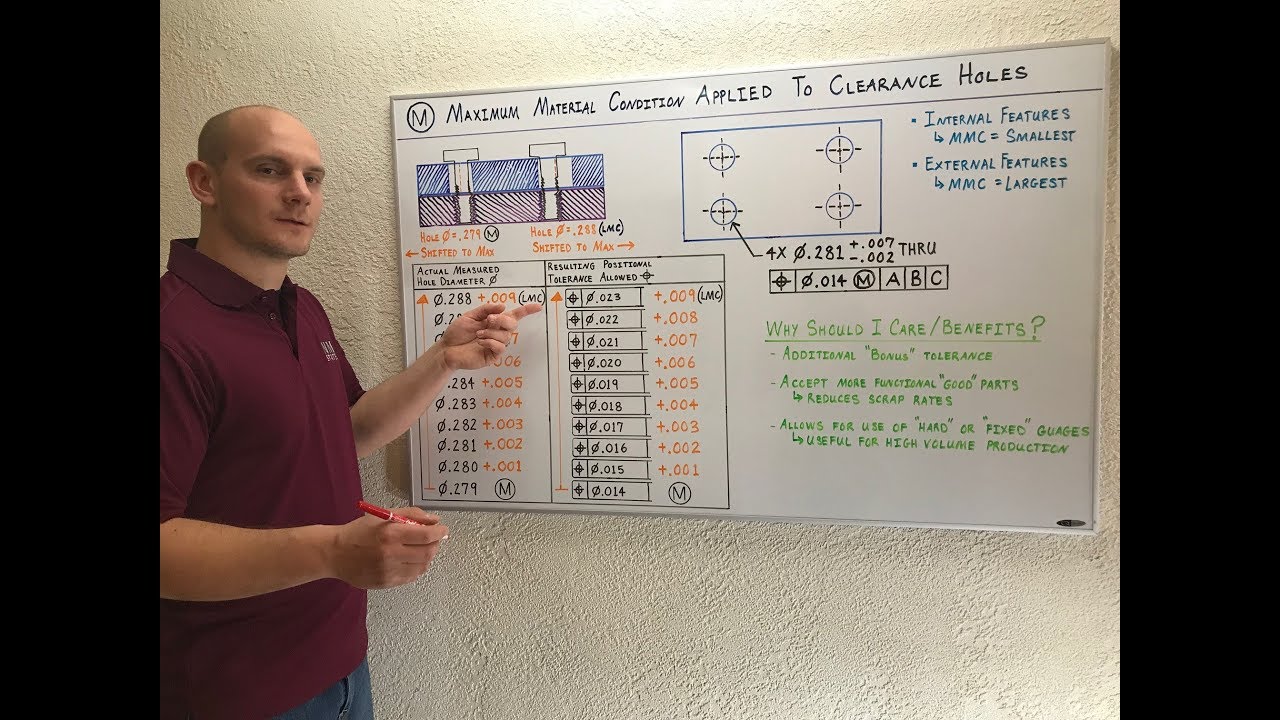 Ⓜ MAXIMUM MATERIAL CONDITION APPLIED TO CLEARANCE HOLES
HOLE Ø=.279 Ⓜ
← SHIFTED TO MAX
HOLE Ø=.288 (LMC)
SHIFTED TO MAX →
▪ INTERNAL FEATURES
↳ MMC = SMALLEST
▪ EXTERNAL FEATURES
↳ MMC = LARGEST
4X Ø.281 +.007 -.002 THRU
⌖ Ø.014 Ⓜ A B C
ACTUAL MEASURED
HOLE DIAMETER Ø
RESULTING POSITIONAL
TOLERANCE ALLOWED ⌖
Ø.288 +.009 (LMC) ⌖ Ø.023 +.009 (LMC)
⌖ Ø.022 +.008
⌖ Ø.021 +.007
⌖ Ø.020 +.006
.284 +.005 ⌖ Ø.019 +.005
Ø.283 +.004 ⌖ Ø.018 +.004
Ø.282 +.003 ⌖ Ø.017 +.003
Ø.281 +.002 ⌖ Ø.016 +.002
Ø.280 +.001 ⌖ Ø.015 +.001
Ø.279 Ⓜ ⌖ Ø.014 Ⓜ
WHY SHOULD I CARE/BENEFITS?
- ADDITIONAL "BONUS" TOLERANCE
- ACCEPT MORE FUNCTIONAL "GOOD" PARTS
↳ REDUCES SCRAP RATES
- ALLOWS FOR USE OF "HARD" OR "FIXED" GUAGES
↳ USEFUL FOR HIGH VOLUME PRODUCTION